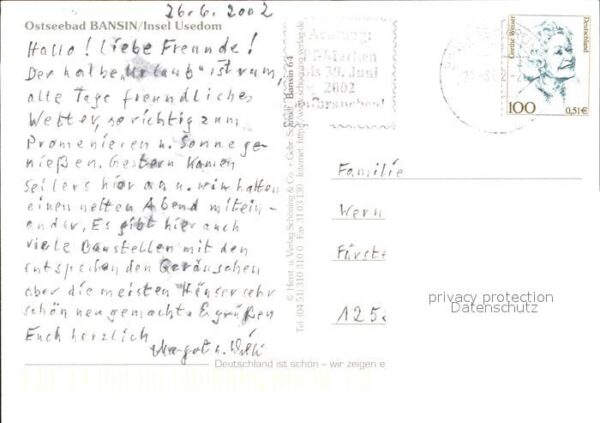 26.6.2002
Ostseebad BANSIN/Insel Usedom
Hallo! Liebe Freunde!
Der halbe „Urlaub" ist rum,
alle Tage freundliches
Wetter, so richtig zum
Promenieren u. Sonne ge-
nießen. Gestern kamen
Seilers hier an u. wir hatten
einen netten Abend mitein-
ander. Es gibt hier auch
viele Baustellen mit den
entsprechenden Geräuschen
aber die meisten Häuser sehr
schön neu gemacht. Es grüßen
Euch herzlich
Margot u. Willi
© Horst u. Verlag Schöning & Co. · Gebr. Schmidt Bansin 64
Tel. (0451) 310 310 0 Fax 31 03 130 Internet: http://www.schoening-verlag.de
Achtung:
bis 30. Juni
2002
aufbrauchen!
Grethe Weiser
Deutschland
100
0,51€
Familie
Wern
Fürst
125
privacy protection
Datenschutz
Deutschland ist schön – wir zeigen e